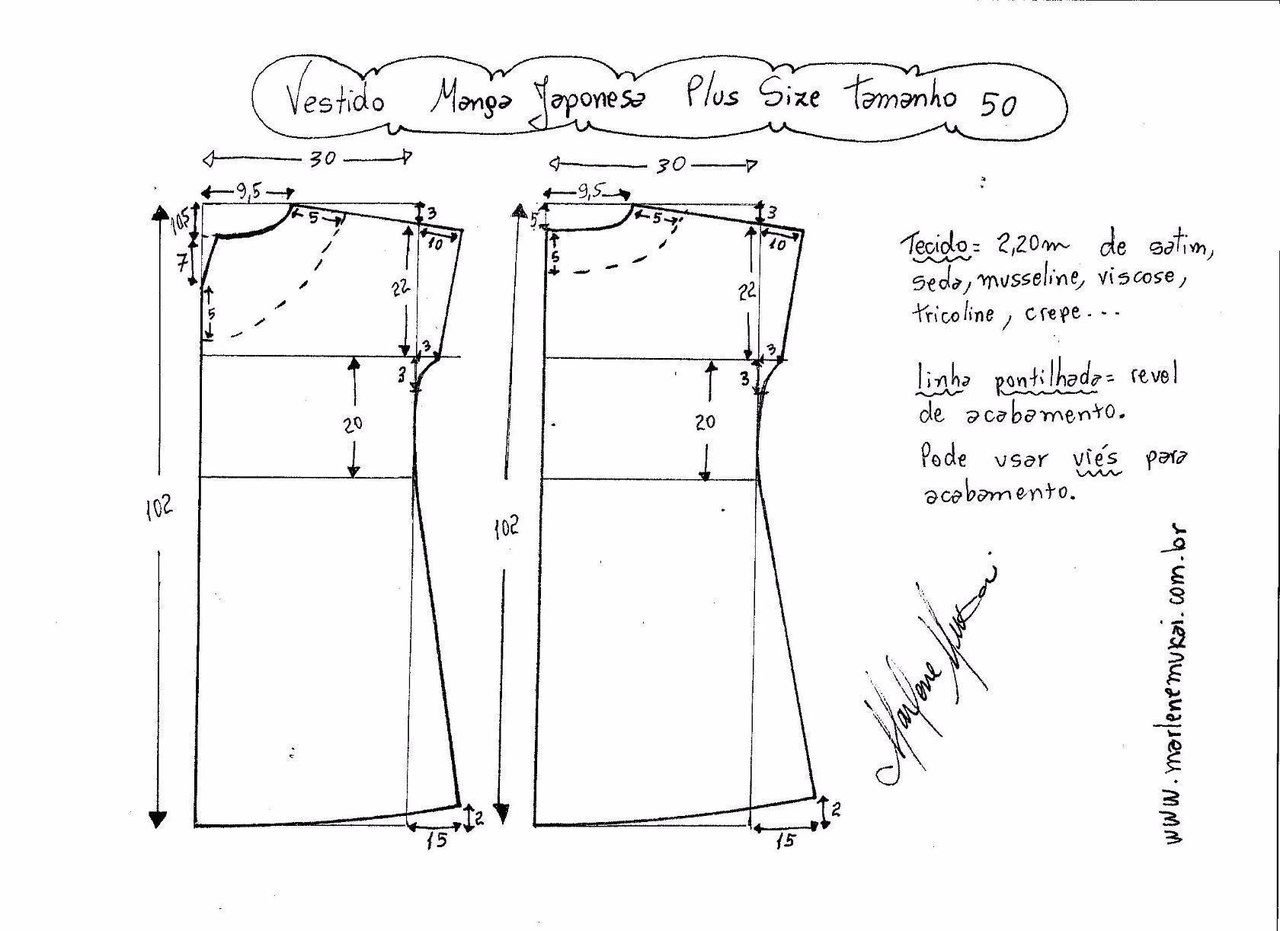 Vestido Manga Japonesa Plus Size Tamanho 50
30
9,5
10,5
7
5
5
3
10
22
3
3
20
102
2
15
30
9,5
5
5
5
3
10
22
3
3
20
102
2
15
Tecido= 2,20m de satim,
seda, musseline, viscose,
tricoline, crepe...
linha pontilhada= revel
de acabamento.
Pode usar viés para
acabamento.
Marlene Mukai
www.marlenemukai.com.br